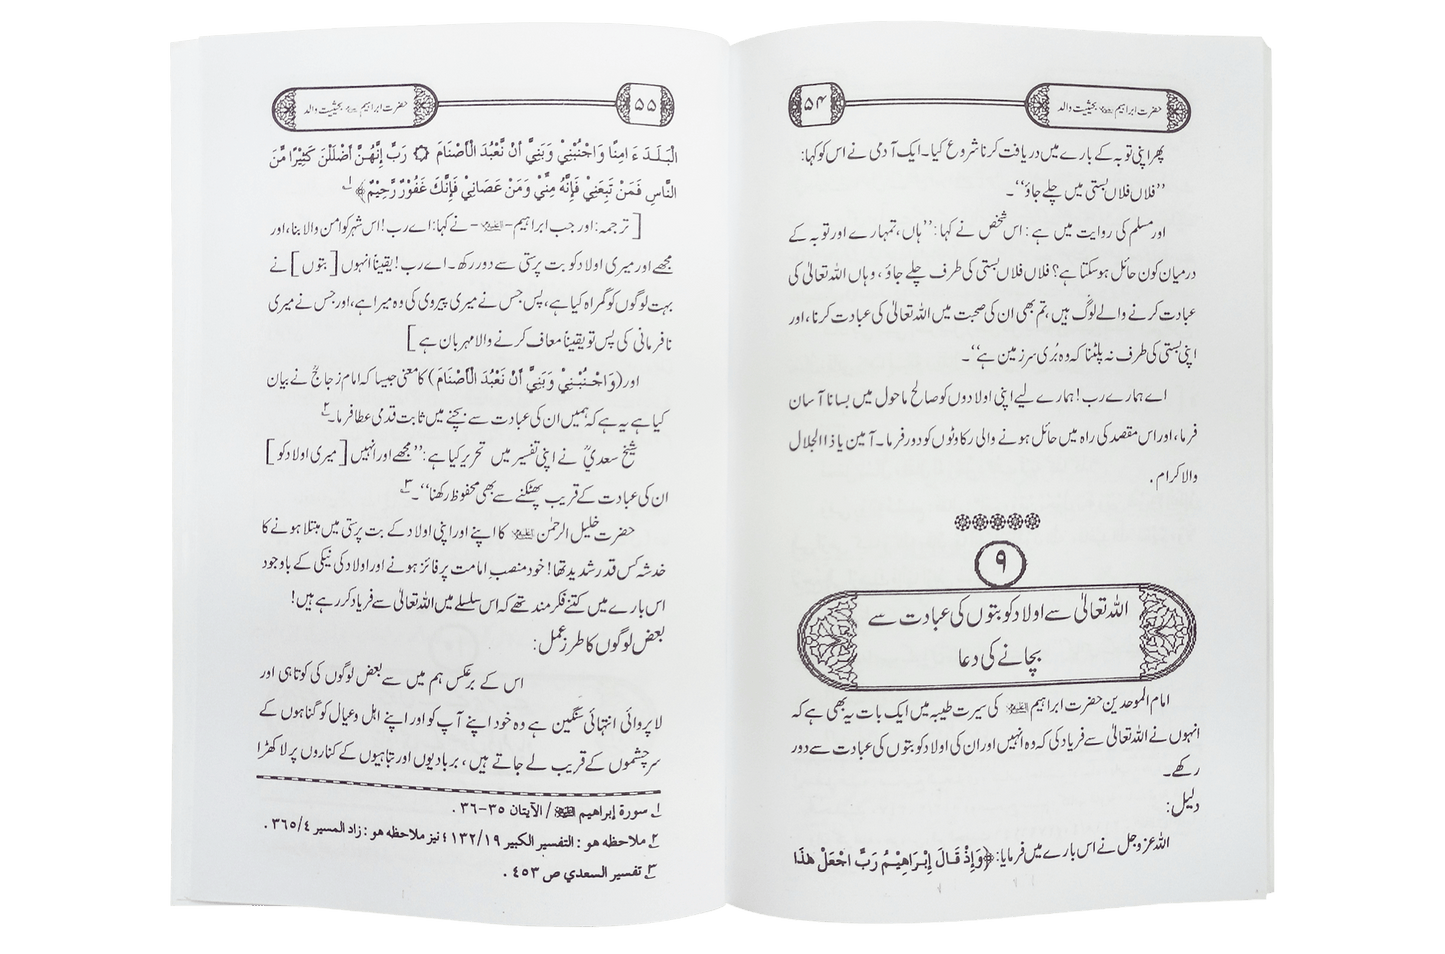 حضرت ابراہیم علیہ السلام بحیثیت والد
۵۴
پھر اپنی توبہ کے بارے میں دریافت کرنا شروع کیا۔ ایک آدمی نے اس کو کہا:
’’فلاں فلاں بستی میں چلے جاؤ‘‘۔
اور مسلم کی روایت میں ہے: اس شخص نے کہا: ’’ہاں، تمہارے اور توبہ کے
درمیان کون حائل ہوسکتا ہے؟ فلاں فلاں بستی کی طرف چلے جاؤ، وہاں اللہ تعالیٰ کی
عبادت کرنے والے لوگ ہیں، تم بھی ان کی صحبت میں اللہ تعالیٰ کی عبادت کرنا، اور
اپنی بستی کی طرف نہ پلٹنا کہ وہ بُری سرزمین ہے‘‘۔
اے ہمارے رب! ہمارے لیے اپنی اولادوں کو صالح ماحول میں بسانا آسان
فرما، اور اس مقصد کی راہ میں حائل ہونے والی رکاوٹوں کو دور فرما۔ آمین یا ذا الجلال
والاکرام.
۹
اللہ تعالیٰ سے اولاد کو بتوں کی عبادت سے
بچانے کی دعا
امام الموحدین حضرت ابراہیم علیہ السلام کی سیرت طیبہ میں ایک بات یہ بھی ہے کہ
انہوں نے اللہ تعالیٰ سے فریاد کی کہ وہ انہیں اور ان کی اولاد کو بتوں کی عبادت سے دور
رکھے۔
دلیل:
اللہ عزوجل نے اس بارے میں فرمایا: ﴿وَإِذْ قَالَ إِبْرَاهِيْمُ رَبِّ اجْعَلْ هٰذَا
۵۵
حضرت ابراہیم علیہ السلام بحیثیت والد
الْبَلَدَ ءَامِنًا وَاجْنُبْنِيْ وَبَنِيَّ أَنْ نَّعْبُدَ الْأَصْنَامَ ۞ رَبِّ إِنَّهُنَّ أَضْلَلْنَ كَثِيْرًا مِّنَ
النَّاسِ فَمَنْ تَبِعَنِيْ فَإِنَّهُ مِنِّيْ وَمَنْ عَصَانِيْ فَإِنَّكَ غَفُوْرٌ رَّحِيْمٌ﴾ ۱
[ترجمہ: اور جب ابراہیم -علیہ السلام- نے کہا: اے رب! اس شہر کو امن والا بنا، اور
مجھے اور میری اولاد کو بت پرستی سے دور رکھ۔ اے رب! یقیناً انہوں [بتوں] نے
بہت لوگوں کو گمراہ کیا ہے، پس جس نے میری پیروی کی وہ میرا ہے، اور جس نے میری
نافرمانی کی پس تو یقیناً معاف کرنے والا مہربان ہے]
اور (وَاجْنُبْنِيْ وَبَنِيَّ أَنْ نَعْبُدَ الْأَصْنَامَ) کا معنی جیسا کہ امام زجاجؒ نے بیان
کیا ہے یہ ہے کہ ہمیں ان کی عبادت سے بچنے میں ثابت قدمی عطا فرما۔ ۲
شیخ سعدیؒ نے اپنی تفسیر میں تحریر کیا ہے: ’’مجھے اور انہیں [میری اولاد کو]
ان کی عبادت کے قریب پھٹکنے سے بھی محفوظ رکھنا‘‘۔ ۳
حضرت خلیل الرحمٰن علیہ السلام کا اپنے اور اپنی اولاد کے بت پرستی میں مبتلا ہونے کا
خدشہ کس قدر شدید تھا! خود منصبِ امامت پر فائز ہونے اور اولاد کی نیکی کے باوجود
اس بارے میں کتنے فکرمند تھے کہ اس سلسلے میں اللہ تعالیٰ سے فریاد کر رہے ہیں!
بعض لوگوں کا طرز عمل:
اس کے برعکس ہم میں سے بعض لوگوں کی کوتاہی اور
لاپروائی انتہائی سنگین ہے وہ خود اپنے آپ کو اور اپنے اہل وعیال کو گناہوں کے
سرچشموں کے قریب لے جاتے ہیں، بربادیوں اور تباہیوں کے کناروں پر لا کھڑا
۱ سورة إبراهيم علیہ السلام / الآيتان ۳۵-۳۶.
۲ ملاحظہ ہو: التفسير الكبير ۱۳۲/۱۹؛ نیز ملاحظہ ہو: زاد المسير ۳۶۵/۴.
۳ تفسير السعدي ص ۴۵۳.